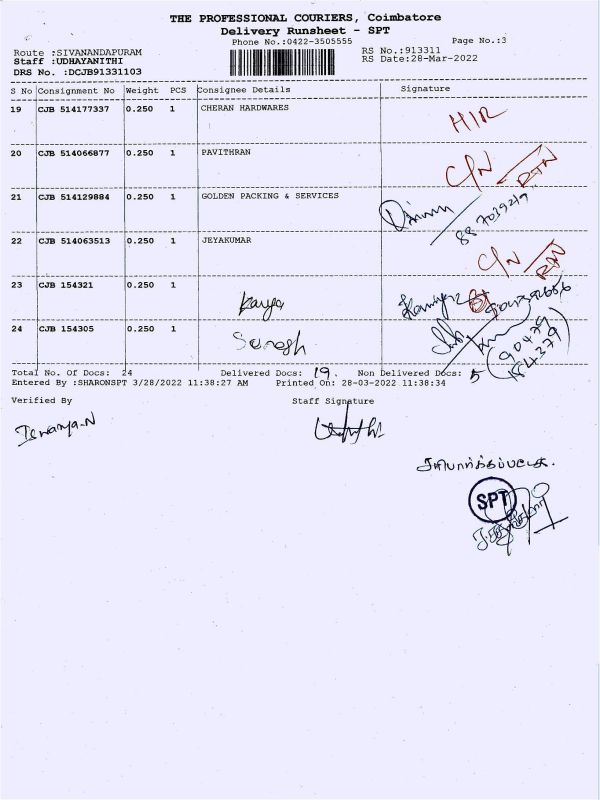 THE PROFESSIONAL COURIERS, Coimbatore
Delivery Runsheet - SPT
Phone No.:0422-3505555 Page No.:3
Route :SIVANANDAPURAM RS No.:913311
Staff :UDHAYANITHI RS Date:28-Mar-2022
DRS No. :DCJB91331103
S No Consignment No Weight PCS Consignee Details Signature
19 CJB 514177337 0.250 1 CHERAN HARDWARES H/R
20 CJB 514066877 0.250 1 PAVITHRAN C/N RTN
21 CJB 514129884 0.250 1 GOLDEN PACKING & SERVICES
22 CJB 514063513 0.250 1 JEYAKUMAR C/N RTN
23 CJB 154321 0.250 1 Kavya
24 CJB 154305 0.250 1 Suresh 90479 84379
Total No. Of Docs: 24 Delivered Docs: 19. Non Delivered Docs: 5
Entered By :SHARONSPT 3/28/2022 11:38:27 AM Printed On: 28-03-2022 11:38:34
Verified By Staff Signature
Iswarya.N
சரிபார்க்கப்பட்டது.
SPT